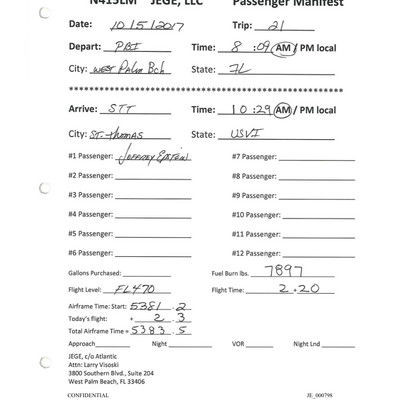 N415LM JEGE, LLC Passenger Manifest
Date: 10/5/2017 Trip: 21
Depart: PBI Time: 8 :09 AM / PM local
City: West Palm Bch State: FL
Arrive: STT Time: 10 :29 AM / PM local
City: St. Thomas State: USVI
#1 Passenger: Jeffrey Epstein #7 Passenger:
#2 Passenger: #8 Passenger:
#3 Passenger: #9 Passenger:
#4 Passenger: #10 Passenger:
#5 Passenger: #11 Passenger:
#6 Passenger: #12 Passenger:
Gallons Purchased: Fuel Burn lbs. 7897
Flight Level: FL470 Flight Time: 2.20
Airframe Time: Start: 5381.2
Today's flight: + 2.3
Total Airframe Time = 5383.5
Approach Night VOR Night Lnd
JEGE, c/o Atlantic
Attn: Larry Visoski
3800 Southern Blvd., Suite 204
West Palm Beach, FL 33406
CONFIDENTIAL JE_000798